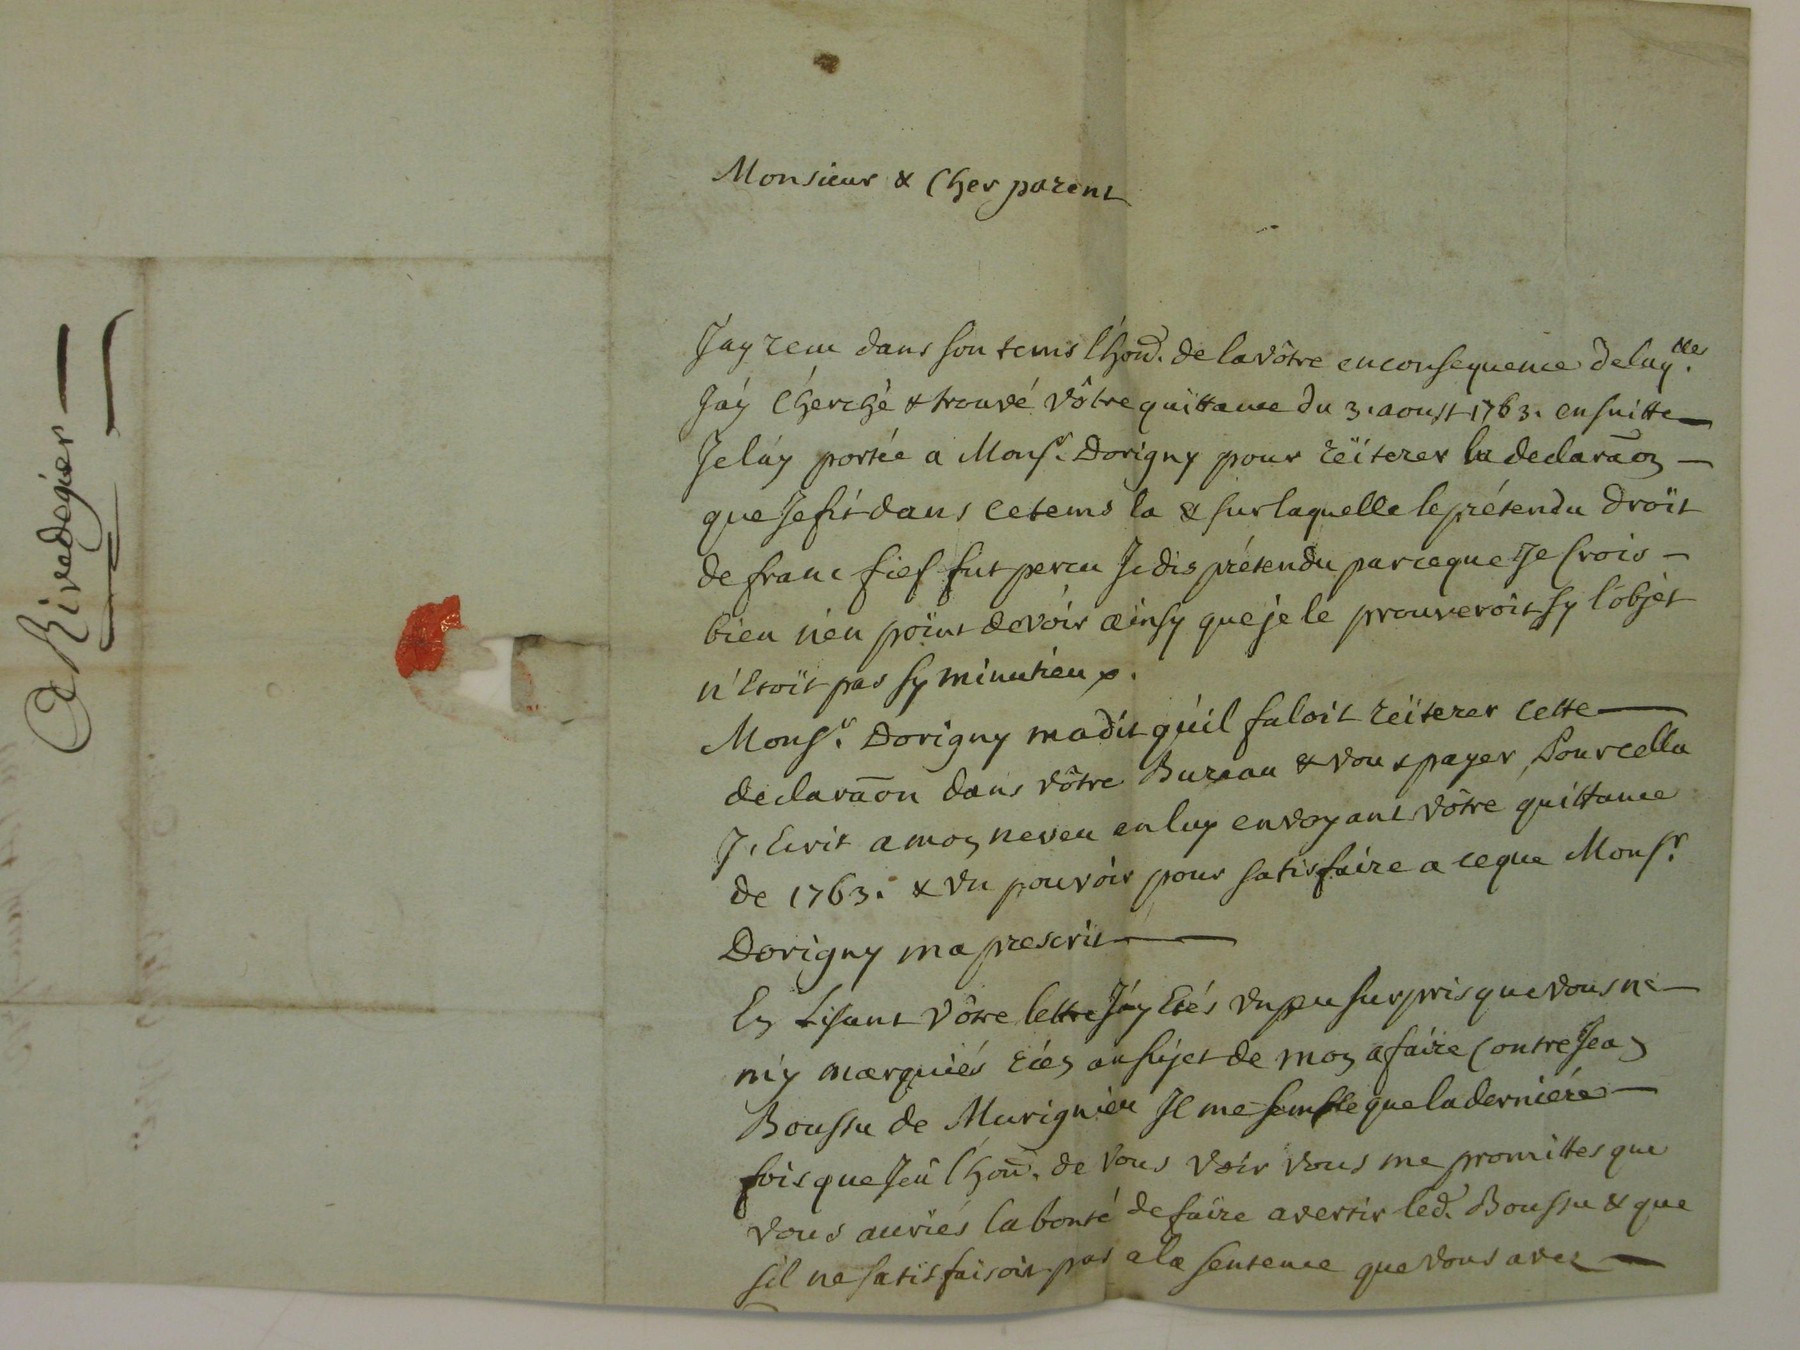 A Rivedegier
Monsieur & Cher parent
Jay receu dans son tems lhon.r de la vôtre en consequence de laq.lle
Jáy Cherché & trouvé vôtre quittance du 3. aoust 1763. ensuitte
Je láy portée a Mons.r Dorigny pour reïterer la declaraōn
que Je fit dans ce tems la & sur laquelle le prétendu droït
de franc fief fut percu Je dis prétendu parceque Je Crois
bien n'en point devoir ainsy que je le prouveroit sy lobjèt
n'Etoït pas sy minutieux.
Mons.r Dorigny ma dit qu'il faloit reïterer cette
declaraōn dans vôtre Bureau & vous payer, Pour cella
J'Ecrit a mon neveu en luy envoyant vôtre quittance
de 1763. & un pouvoir pour satisfaire a ceque Mons.r
Dorigny ma prescrit
En Lisant Vôtre lettre Jáy Etés un peu surpris que vous ne
m'y marquiés rien au sujet de mon afaire Contre Jean
Boussu de Murignieu Il me semble que la derniére
fois que Jeû lhon.r de vous voir vous me promittes que
vous auriés la bonté de faire avertir led. Boussu & que
sil ne satisfaisoit pas a la sentence que vous avez